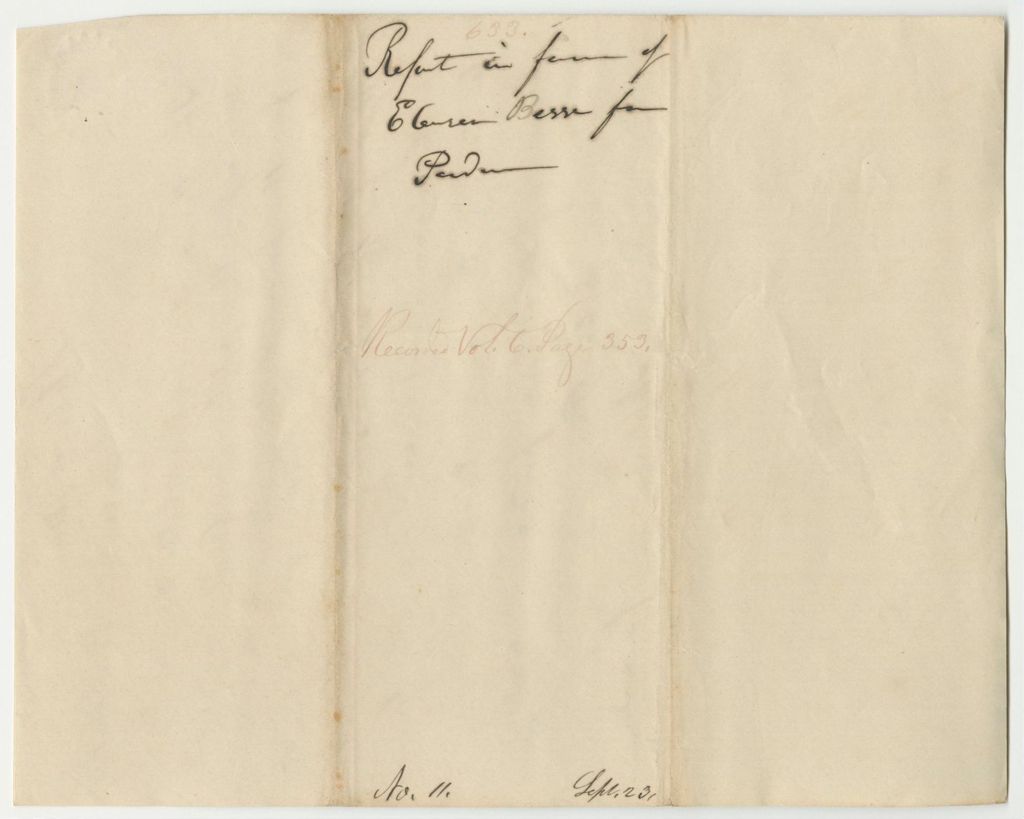 633.
Report in favor of
Ebenezer Besse for
Pardon
Recorded Vol. 6. Page 353.
No. 11. Sept. 23,